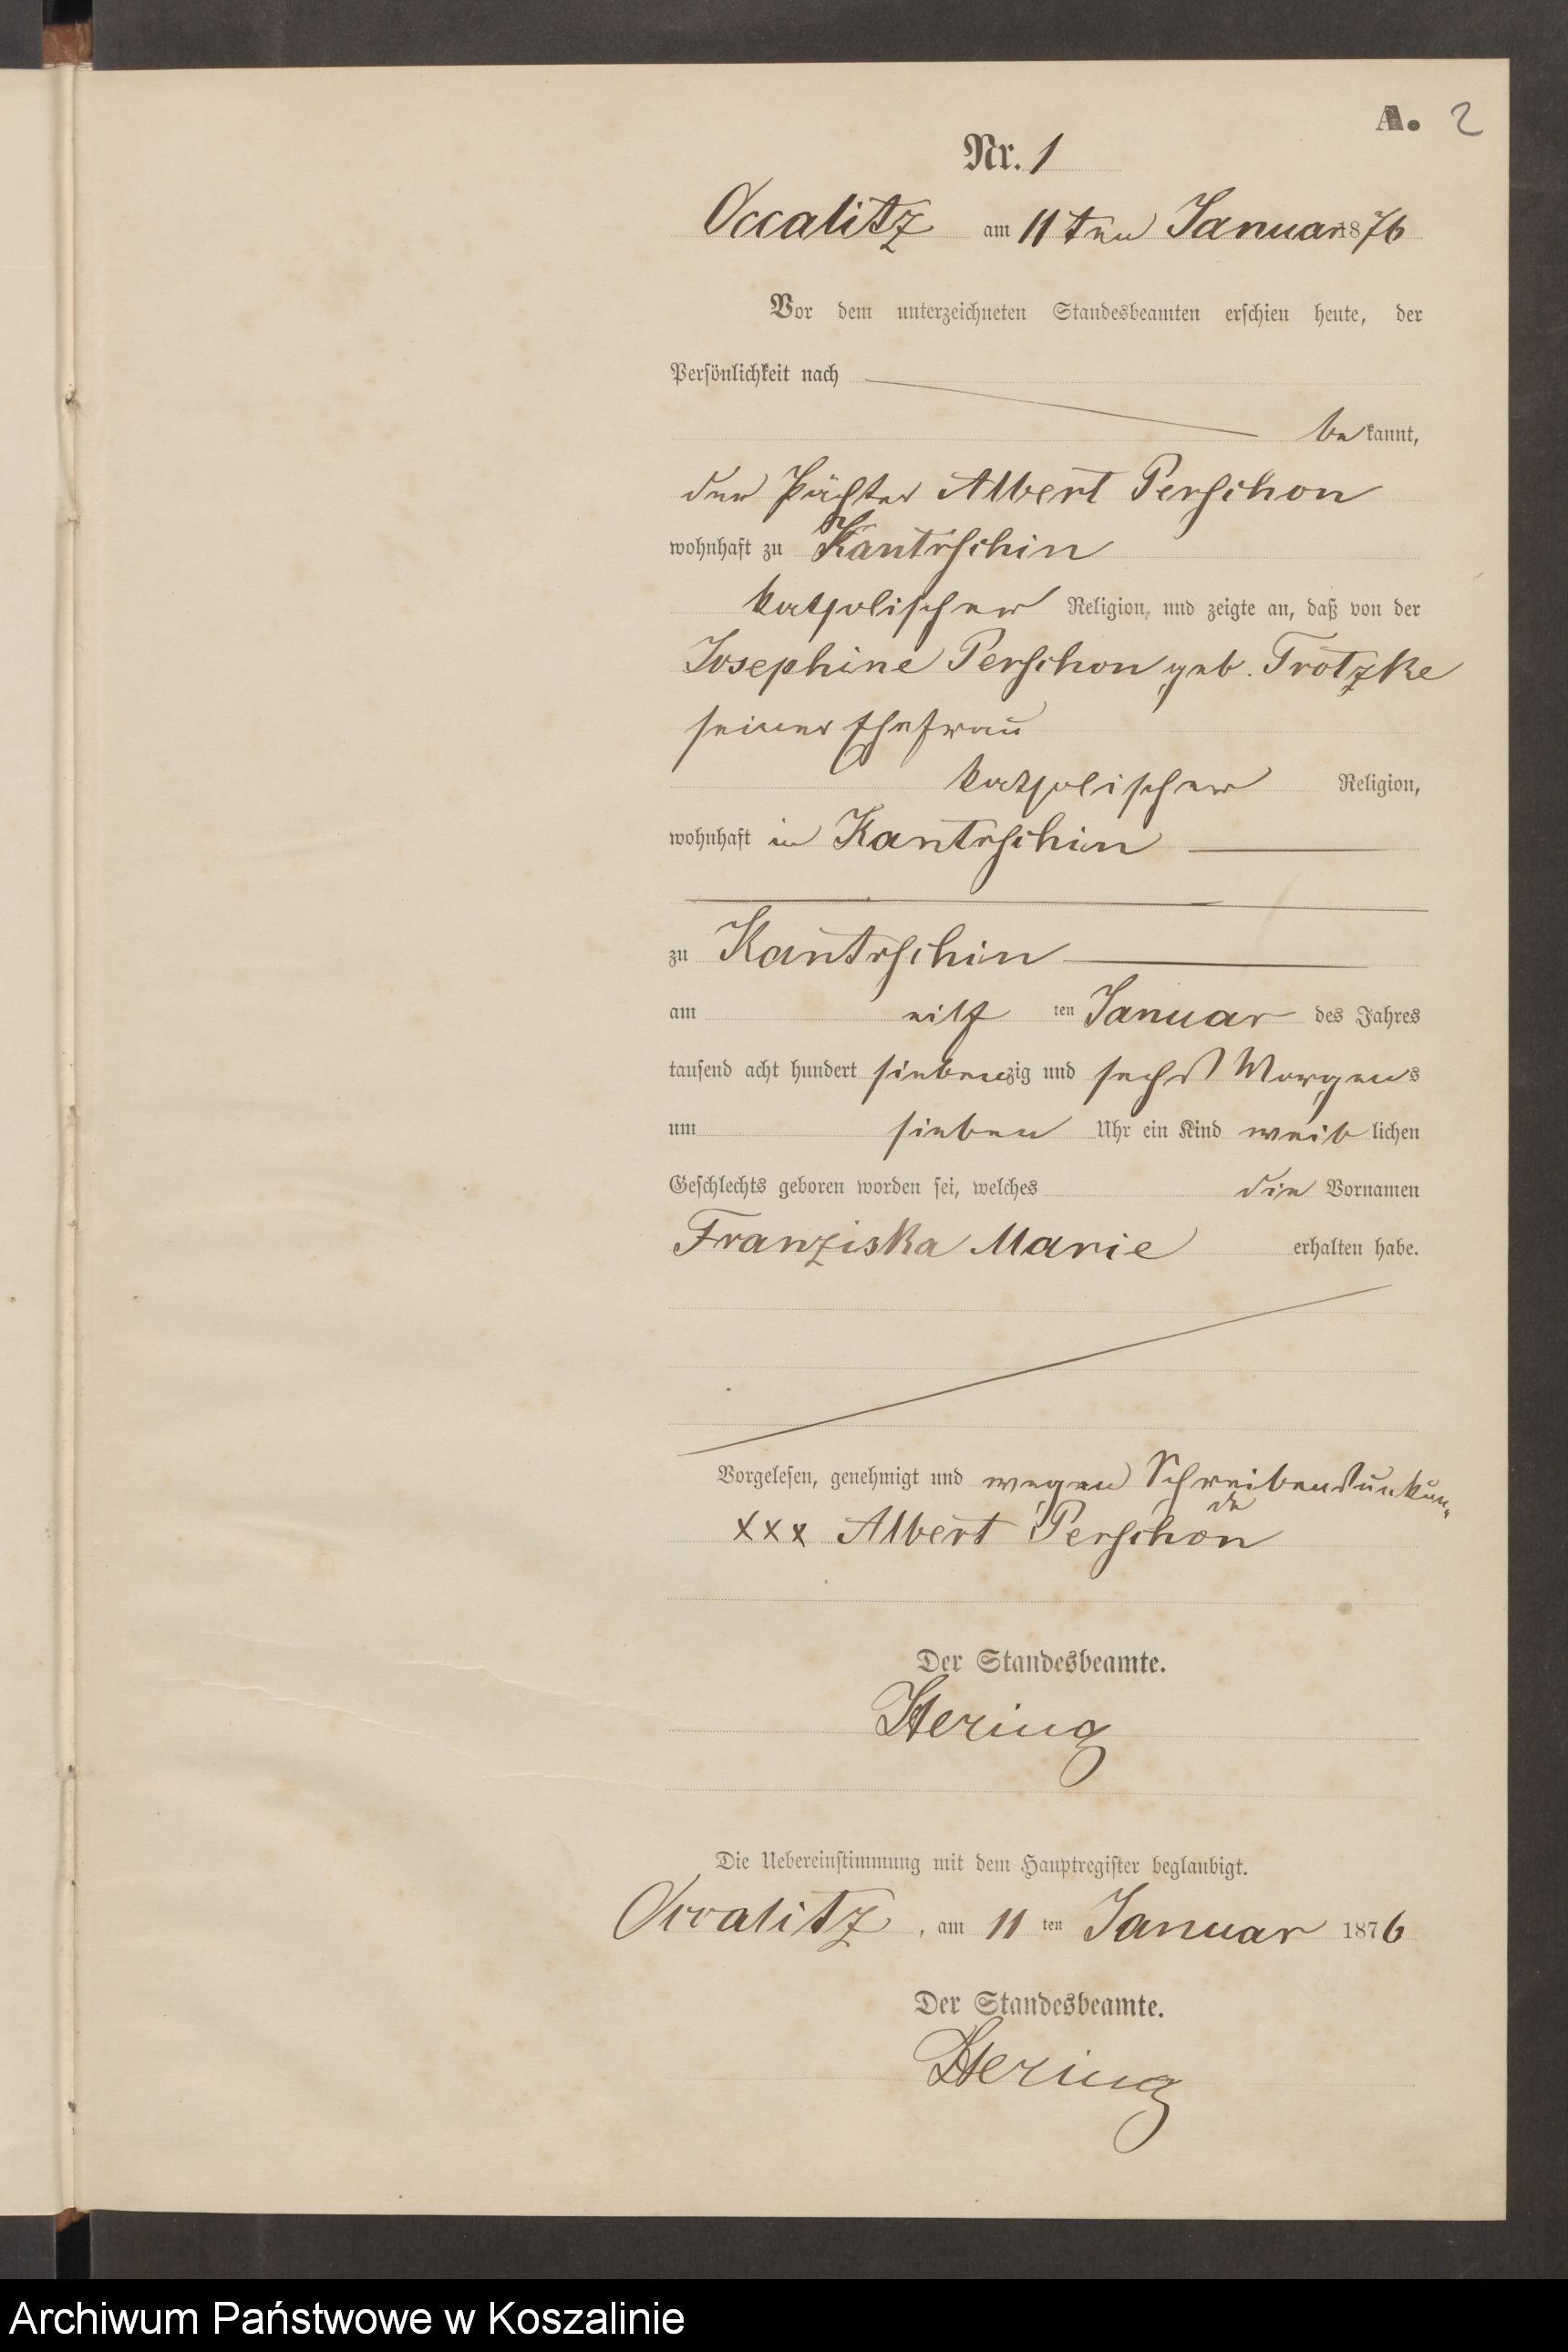 A. 2
Nr. 1
Occalitz am 11ten Januar 1876
Vor dem unterzeichneten Standesbeamten erschien heute, der
Persönlichkeit nach
bekannt,
der Pächter Albert Perschon
wohnhaft zu Kantrschin
katholischer Religion, und zeigte an, daß von der
Josephine Perschon geb. Trotzke
seiner Ehefrau
katholischer Religion,
wohnhaft in Kantrschin
zu Kantrschin
am eilf ten Januar des Jahres
tausend acht hundert siebenzig und sechs Morgens
um sieben Uhr ein Kind weiblichen
Geschlechts geboren worden sei, welches die Vornamen
Franziska Marie erhalten habe.
Vorgelesen, genehmigt und wegen Schreibensunkun-
de
xxx Albert Perschon
Der Standesbeamte.
Hering
Die Uebereinstimmung mit dem Hauptregister beglaubigt.
Occalitz, am 11 ten Januar 1876
Der Standesbeamte.
Hering
Archiwum Państwowe w Koszalinie